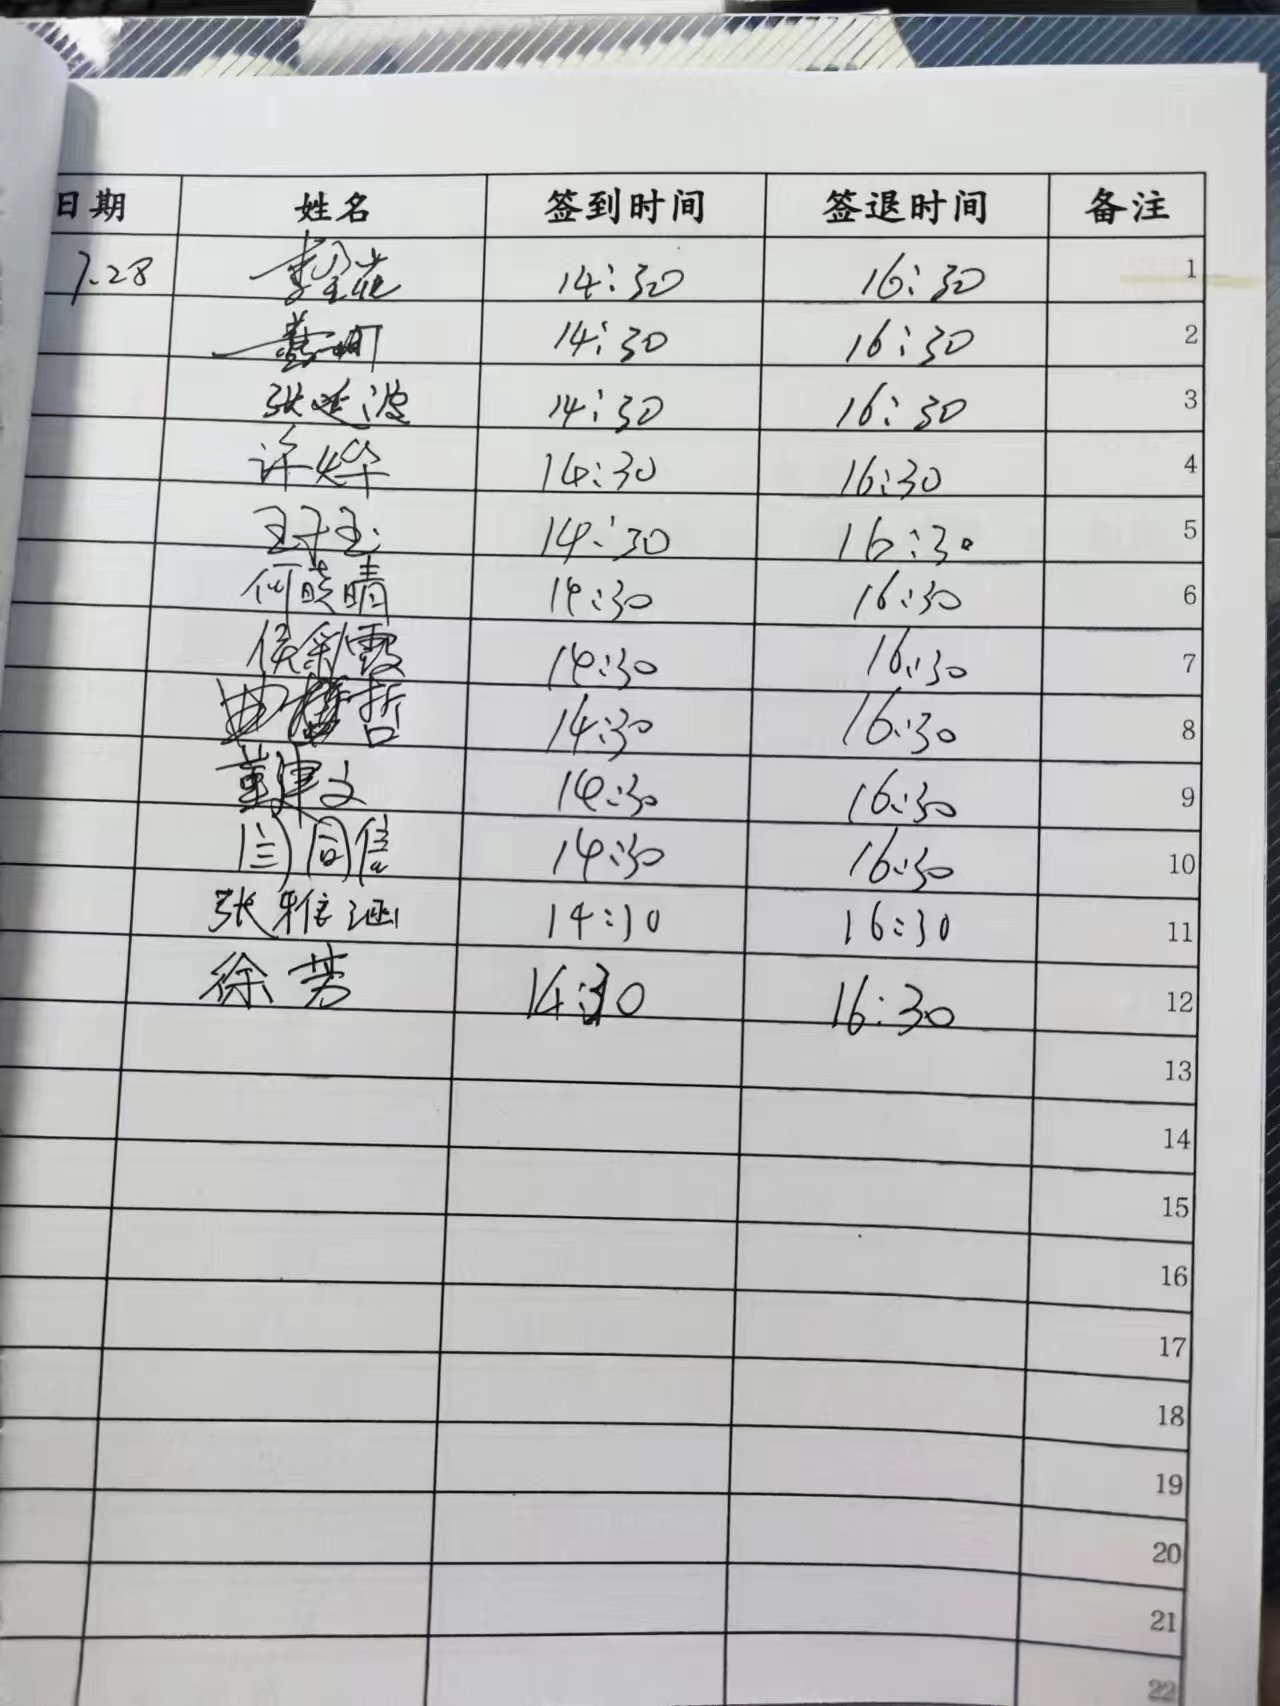 日期 姓名 签到时间 签退时间 备注
7.28 14:30 16:30 1
14:30 16:30 2
张延波 14:30 16:30 3
许烨 14:30 16:30 4
王子玉 14:30 16:30 5
何晓晴 14:30 16:30 6
侯彩霞 14:30 16:30 7
曲博哲 14:30 16:30 8
董建文 14:30 16:30 9
闫同信 14:30 16:30 10
张雅涵 14:30 16:30 11
徐芳 14:30 16:30 12
13
14
15
16
17
18
19
20
21
22